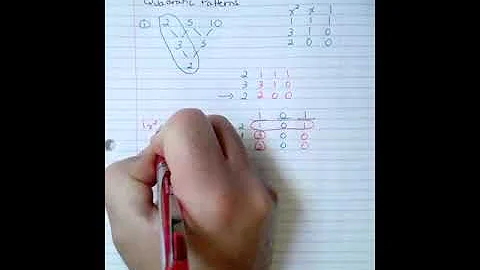 Quadratic Patterns
① 2 5 10
3 5
2
x² x 1
1 1 1
3 1 0
2 0 0
2 1 1 1
3 3 1 0
→ 2 2 0 0
1 0 1
2 1 0 1
0 0
0 0
1x²